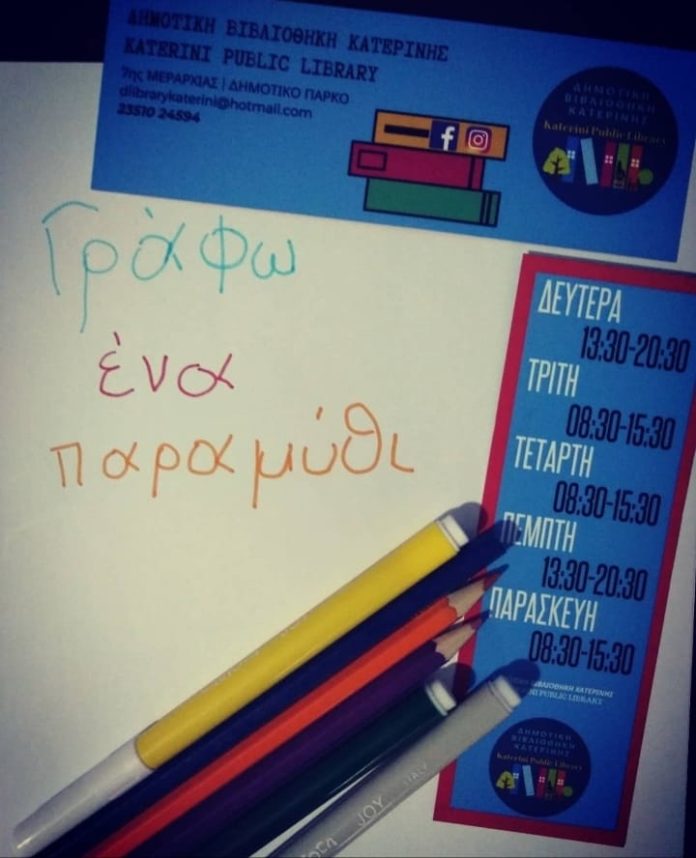 ΔΗΜΟΤΙΚΗ ΒΙΒΛΙΟΘΗΚΗ ΚΑΤΕΡΙΝΗΣ
KATERINI PUBLIC LIBRARY
7ης ΜΕΡΑΡΧΙΑΣ | ΔΗΜΟΤΙΚΟ ΠΑΡΚΟ
dlibrarykaterini@hotmail.com
23510 24594
ΔΗΜΟΤΙΚΗ
ΒΙΒΛΙΟΘΗΚΗ
ΚΑΤΕΡΙΝΗΣ
Katerini Public Library
Γράφω
ένα
παραμύθι
ΔΕΥΤΕΡΑ
13:30-20:30
ΤΡΙΤΗ
08:30-15:30
ΤΕΤΑΡΤΗ
08:30-15:30
ΠΕΜΠΤΗ
13:30-20:30
ΠΑΡΑΣΚΕΥΗ
08:30-15:30
ΒΙΒΛΙΟΘΗΚΗ ΚΑΤΕΡΙΝΗΣ
PUBLIC LIBRARY
ΔΗΜΟΤΙΚΗ
ΒΙΒΛΙΟΘΗΚΗ
ΚΑΤΕΡΙΝΗΣ
Katerini Public Library
JOY